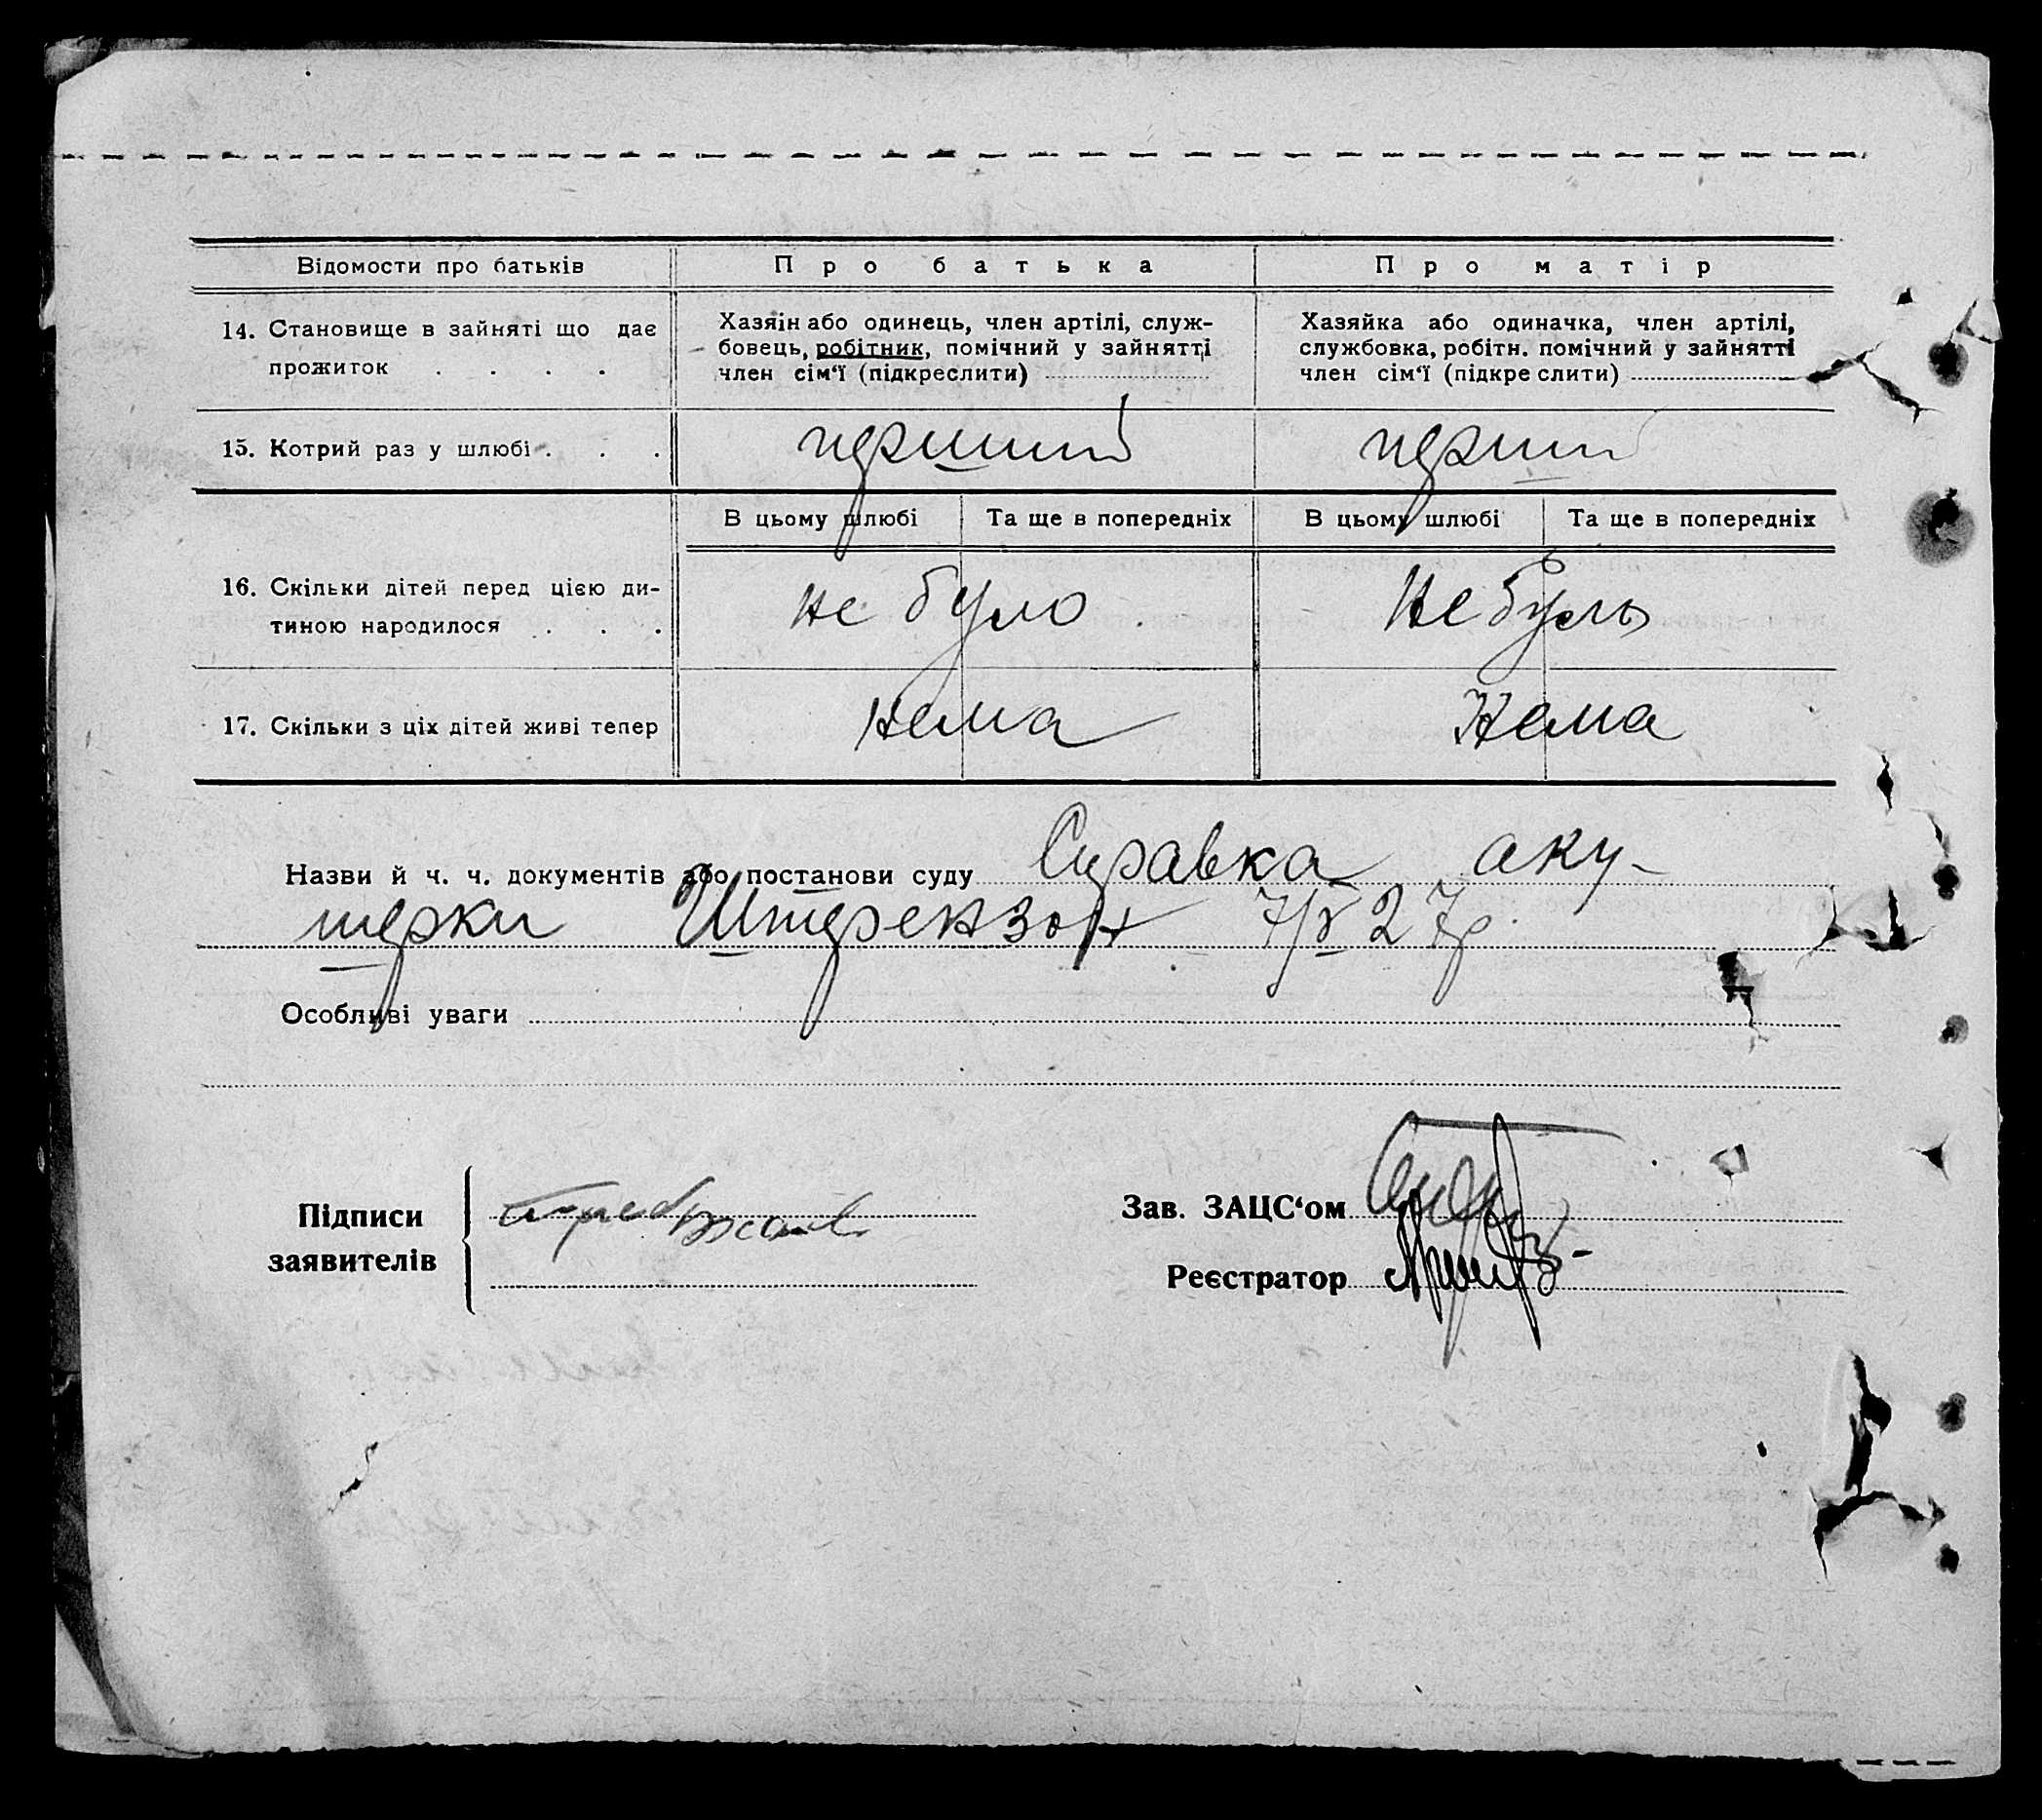 Відомости про батьків Про батька Про матір
14. Становище в зайняті що дає прожиток . . . .
Хазяін або одинець, член артілі, служ-
бовець, робітник, помічний у зайнятті
член сім‘ї (підкреслити)
Хазяйка або одиначка, член артілі,
службовка, робітн. помічний у зайнятті
член сім‘ї (підкреслити)
15. Котрий раз у шлюбі . . . перший перший
В цьому шлюбі Та ще в попередніх В цьому шлюбі Та ще в попередніх
16. Скільки дітей перед цією ди-
тиною народилося . . . не було Не було
17. Скільки з ціх дітей живі тепер нема Нема
Назви й ч. ч. документів або постанови суду Справка аку-
шерки Штерензон 7/V 27р.
Особливі уваги
Підписи
заявителів
Зав. ЗАЦС‘ом
Реєстратор